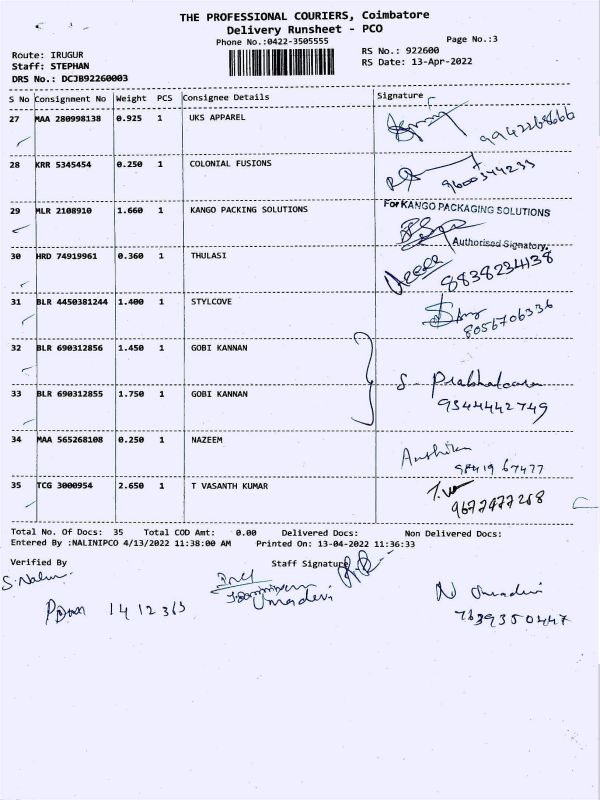 THE PROFESSIONAL COURIERS, Coimbatore
Delivery Runsheet - PCO
Phone No.:0422-3505555
Page No.:3
Route: IRUGUR
Staff: STEPHAN
DRS No.: DCJB92260003
RS No.: 922600
RS Date: 13-Apr-2022
S No Consignment No Weight PCS Consignee Details Signature
27 MAA 280998138 0.925 1 UKS APPAREL
28 KRR 5345454 0.250 1 COLONIAL FUSIONS 9600344233
29 MLR 2108910 1.660 1 KANGO PACKING SOLUTIONS For KANGO PACKAGING SOLUTIONS
Authorised Signatory.
30 HRD 74919961 0.360 1 THULASI 8838234138
31 BLR 4450381244 1.400 1 STYLCOVE
8056706336
32 BLR 690312856 1.450 1 GOBI KANNAN
S. Prabhakaran
33 BLR 690312855 1.750 1 GOBI KANNAN 9344442749
34 MAA 565268108 0.250 1 NAZEEM
9841967477
35 TCG 3000954 2.650 1 T VASANTH KUMAR
9677477268
Total No. Of Docs: 35 Total COD Amt: 0.00 Delivered Docs: Non Delivered Docs:
Entered By :NALINIPCO 4/13/2022 11:38:00 AM Printed On: 13-04-2022 11:36:33
Verified By Staff Signature
Umadevi
1412363
7639350447